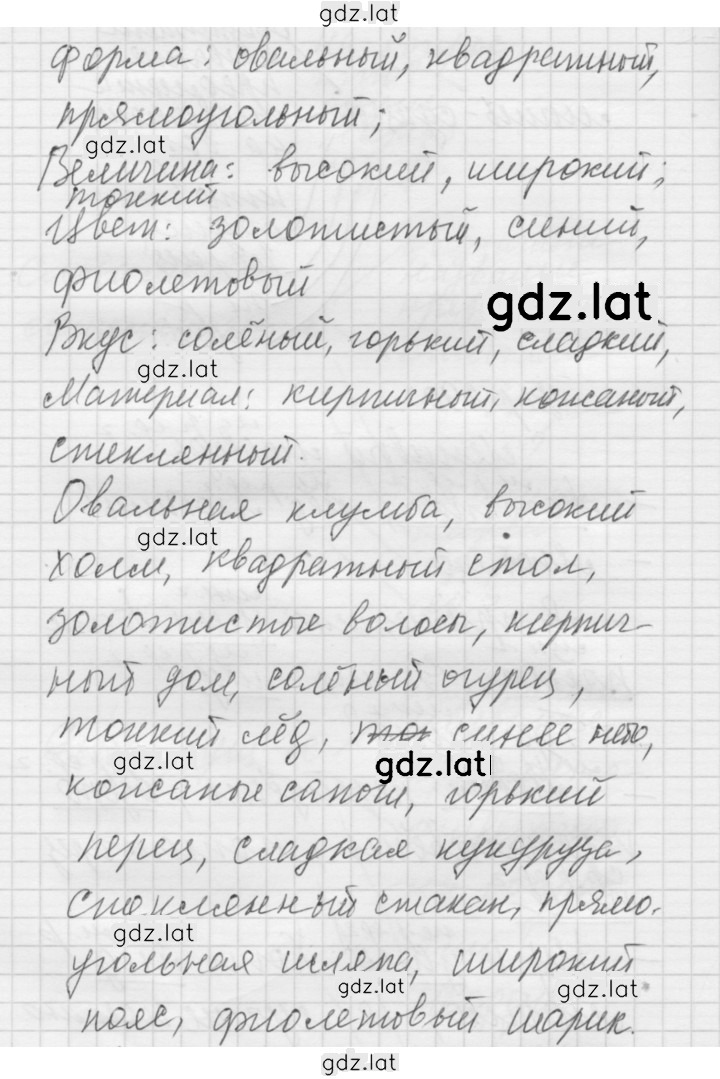 gdz.lat
форма: овальный, квадратный,
прямоугольный;
gdz.lat
Величина: высокий, широкий;
тонкий
Цвет: золотистый, синий,
фиолетовый
gdz.lat
Вкус: солёный, горький, сладкий,
gdz.lat
Материал: кирпичный, кожаный,
стеклянный.
Овальная клумба, высокий
gdz.lat
холм, квадратный стол,
золотистые волосы, кирпич-
ный дом, солёный огурец,
тонкий лёд, то синее небо,
gdz.lat
gdz.lat
кожаные сапоги, горький
перец, сладкая кукуруза,
стеклянный стакан, прямо-
gdz.lat
угольная шляпа, широкий
gdz.lat
gdz.lat
пояс, фиолетовый шарик.
gdz.lat